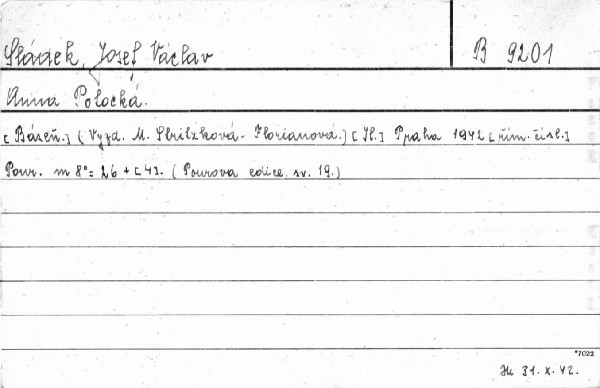 Sládek, Josef Václav
B 9201
Anna Polocká.
[Báseň.] (Vyzd. M. Střížková-Florianová.) [Il.] Praha 1942 [řím. čísl.]
Pour. m 8°= 26 + [4]. (Pourova edice, sv. 19.)
*7022
31. X. 42.